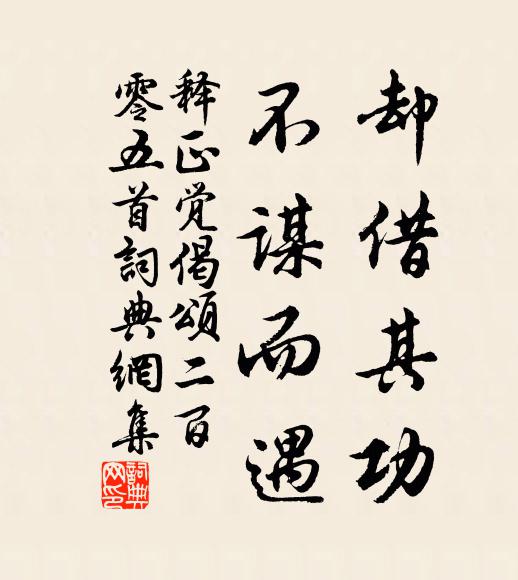 却借其功
不谋而遇
释正觉偈颂二百
零五首詞典網集
詞典
网印